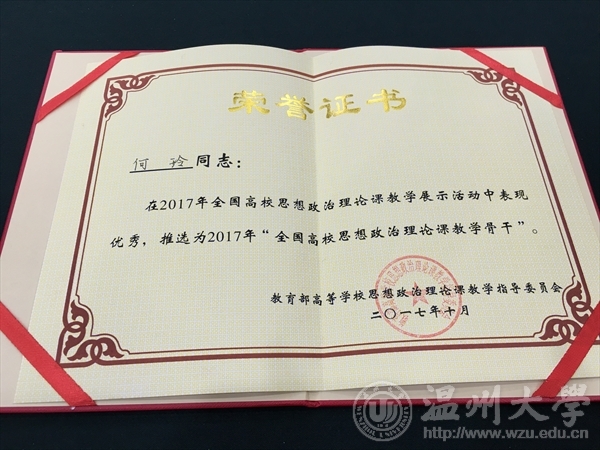 荣誉证书
何玲同志：
在2017年全国高校思想政治理论课教学展示活动中表现
优秀，推选为2017年“全国高校思想政治理论课教学骨干”。
教育部高等学校思想政治理论课教学指导委员会
二〇一七年十月
温州大学
http://www.wzu.edu.cn